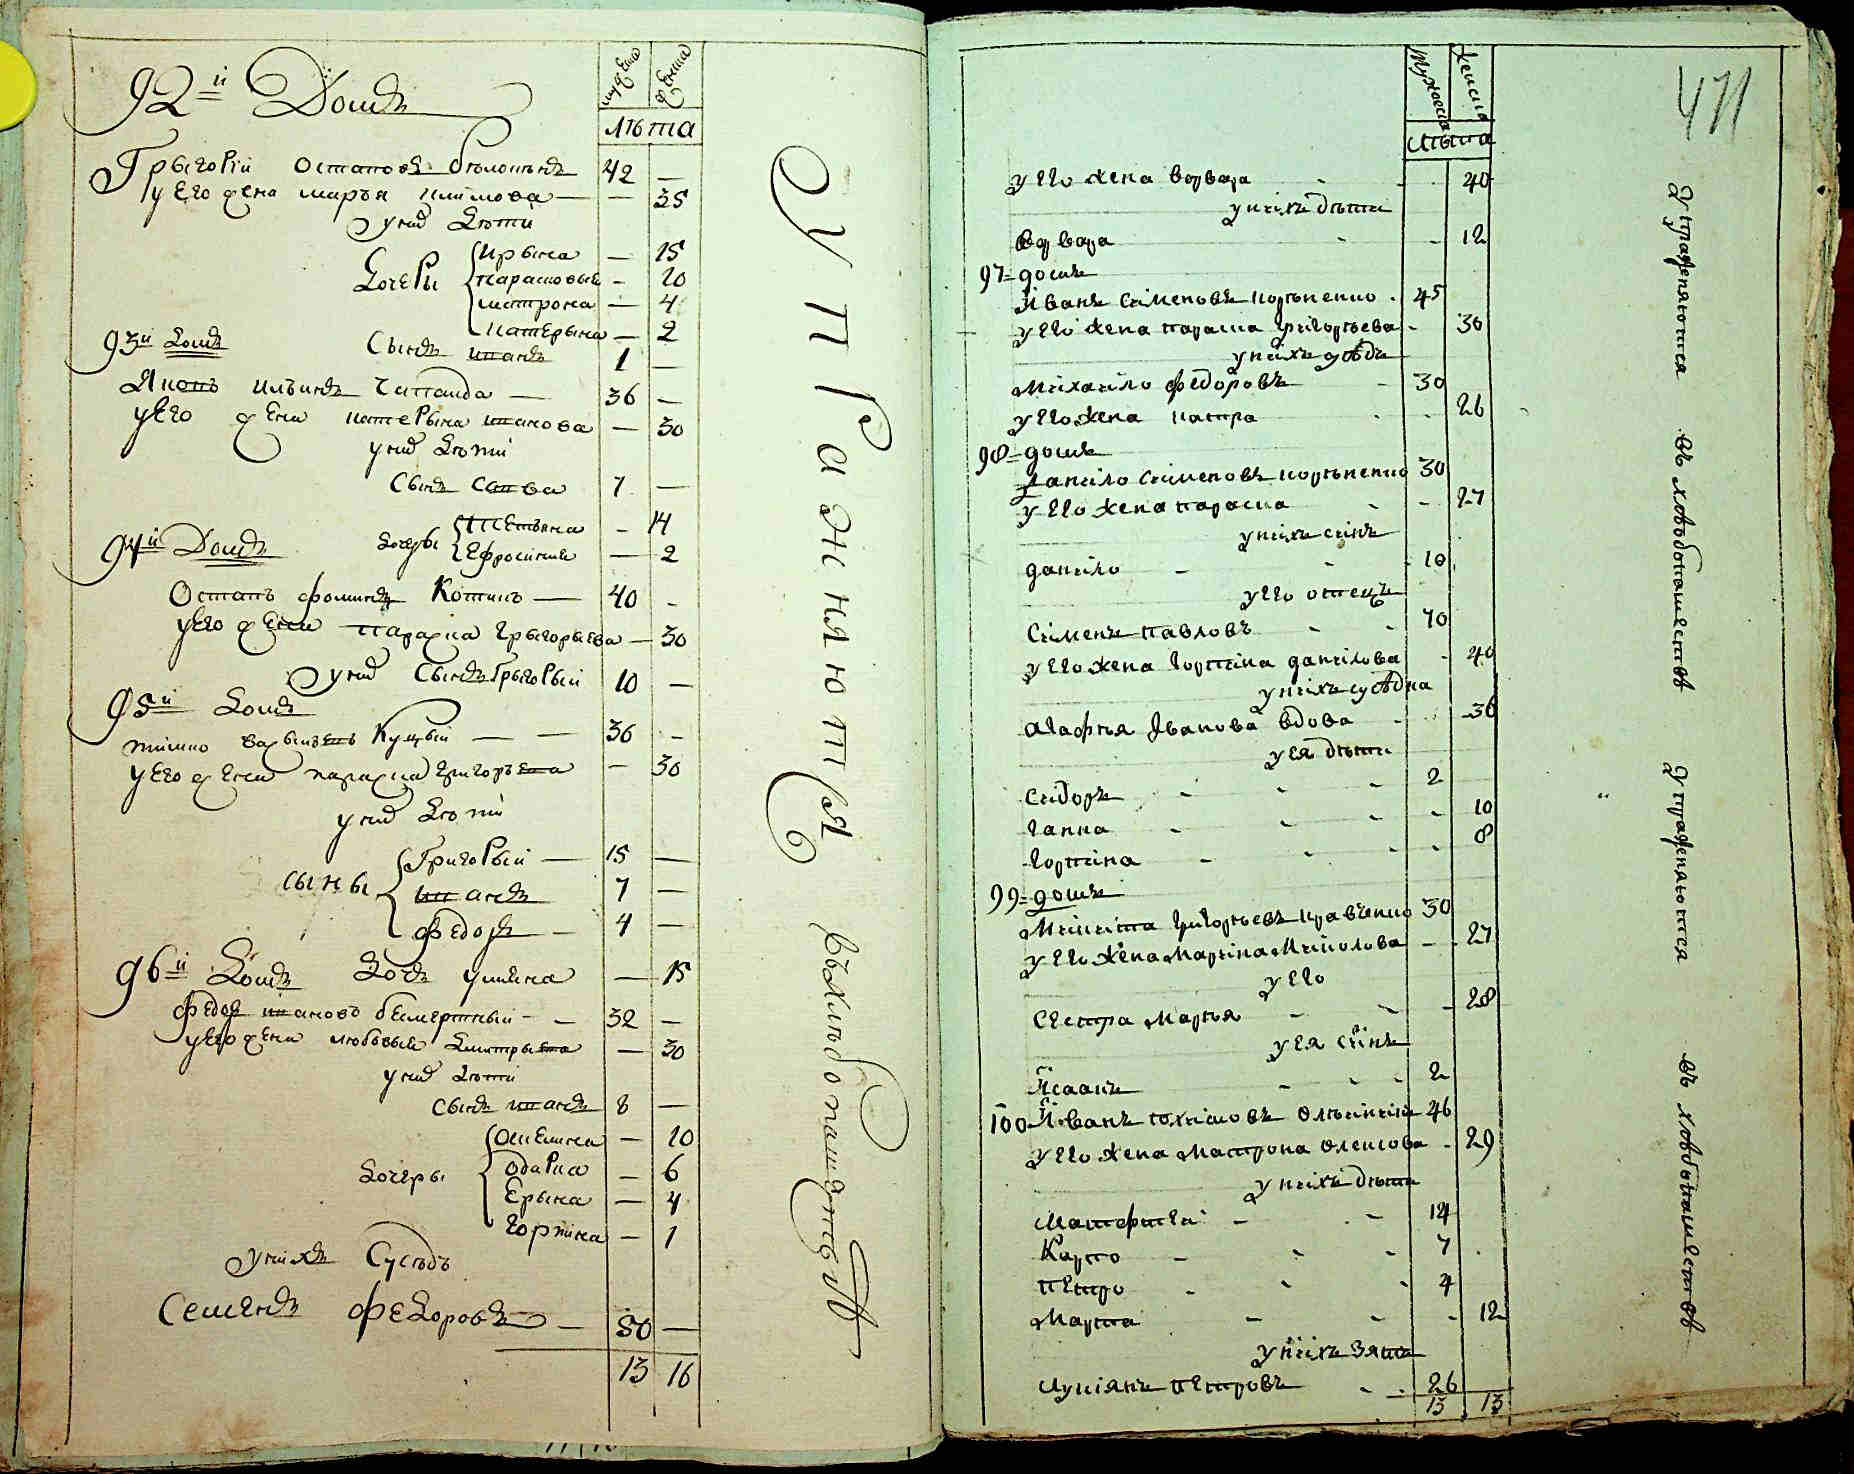 92й Домъ
мужеска
женска
лѣта
Грыгорій Остаповъ
42 —
у Его жена марья климова — — 35
у нихъ дѣти
дочеры
ирына — 15
парасковья — 10
мотрона — 4
катерына — 2
93й домъ
сынъ иванъ 1 —
Яковъ ильинъ Чапанда — 36 —
у Его жена катерына иванова — 30
у нихъ дѣти
сынъ савва 7 —
94й Домъ
дочеры
Тетьяна — 14
Ефросиния — 2
Остапъ фоминъ Котикъ — 40 —
у Его жена параска грыгорьева — 30
у нихъ сынъ Грыгорый 10 —
95й домъ
тишко Куцый — — 36 —
у Его жена параска григорьева — 30
у нихъ дѣти
сыны
Григорый — 15 —
иванъ 7 —
Федоръ — 4 —
96й домъ
дочь улияна — 15
Федор ивановъ безмертный — 32 —
у Его жена любовья дмитрыева — 30
у нихъ дѣти
сынъ иванъ 8 —
дочеры
— 10
Одарка — 6
Ерына — 4
горпина — 1
у нихъ Сусѣдъ
Семенъ Федоровъ — 50 —
13 16
Упражняются
въ хлѣбопашествѣ
471
мужеска
женска
лѣта
у его жена варвара - - - 40
у нихъ дѣти
варвара - - 12
97= домъ
Иванъ Сименовъ корѣненко - 45
у его жена параска григорьева - 30
у нихъ сусѣдъ
михайло федоровъ - 30
у его жена катра - - 26
98= домъ
данило Сименовъ корѣненко 30
у его жена параска - - 27
у нихъ синъ
данило - - - 10
у его отецъ
Сименъ павловъ - - 70
у его жена горпина данилова - 40
у нихъ сусѣдка
агафья Іванова вдова - - 36
у ея дѣти
Сидоръ - - - 2
ганна - - - - 10
горпина - - - - 8
99= домъ
Микита григорьевъ кравченко 30
у его жена марина миколова - - 27
у его
Сестра марья - - - 28
у ея синъ
Исаакъ - - - 2
100 Иванъ юхимовъ Олѣйникъ 46
у его жена мотрона олексова - 29
у нихъ дѣти
матефтей - - - 14
Карпо - - - 7
петро - - - 4
марта - - - 12
у нихъ зять
лукіянъ петровъ - - 26
13 13
упражняются въ хлѣбопашествѣ
упражняются въ хлѣбопашествѣ